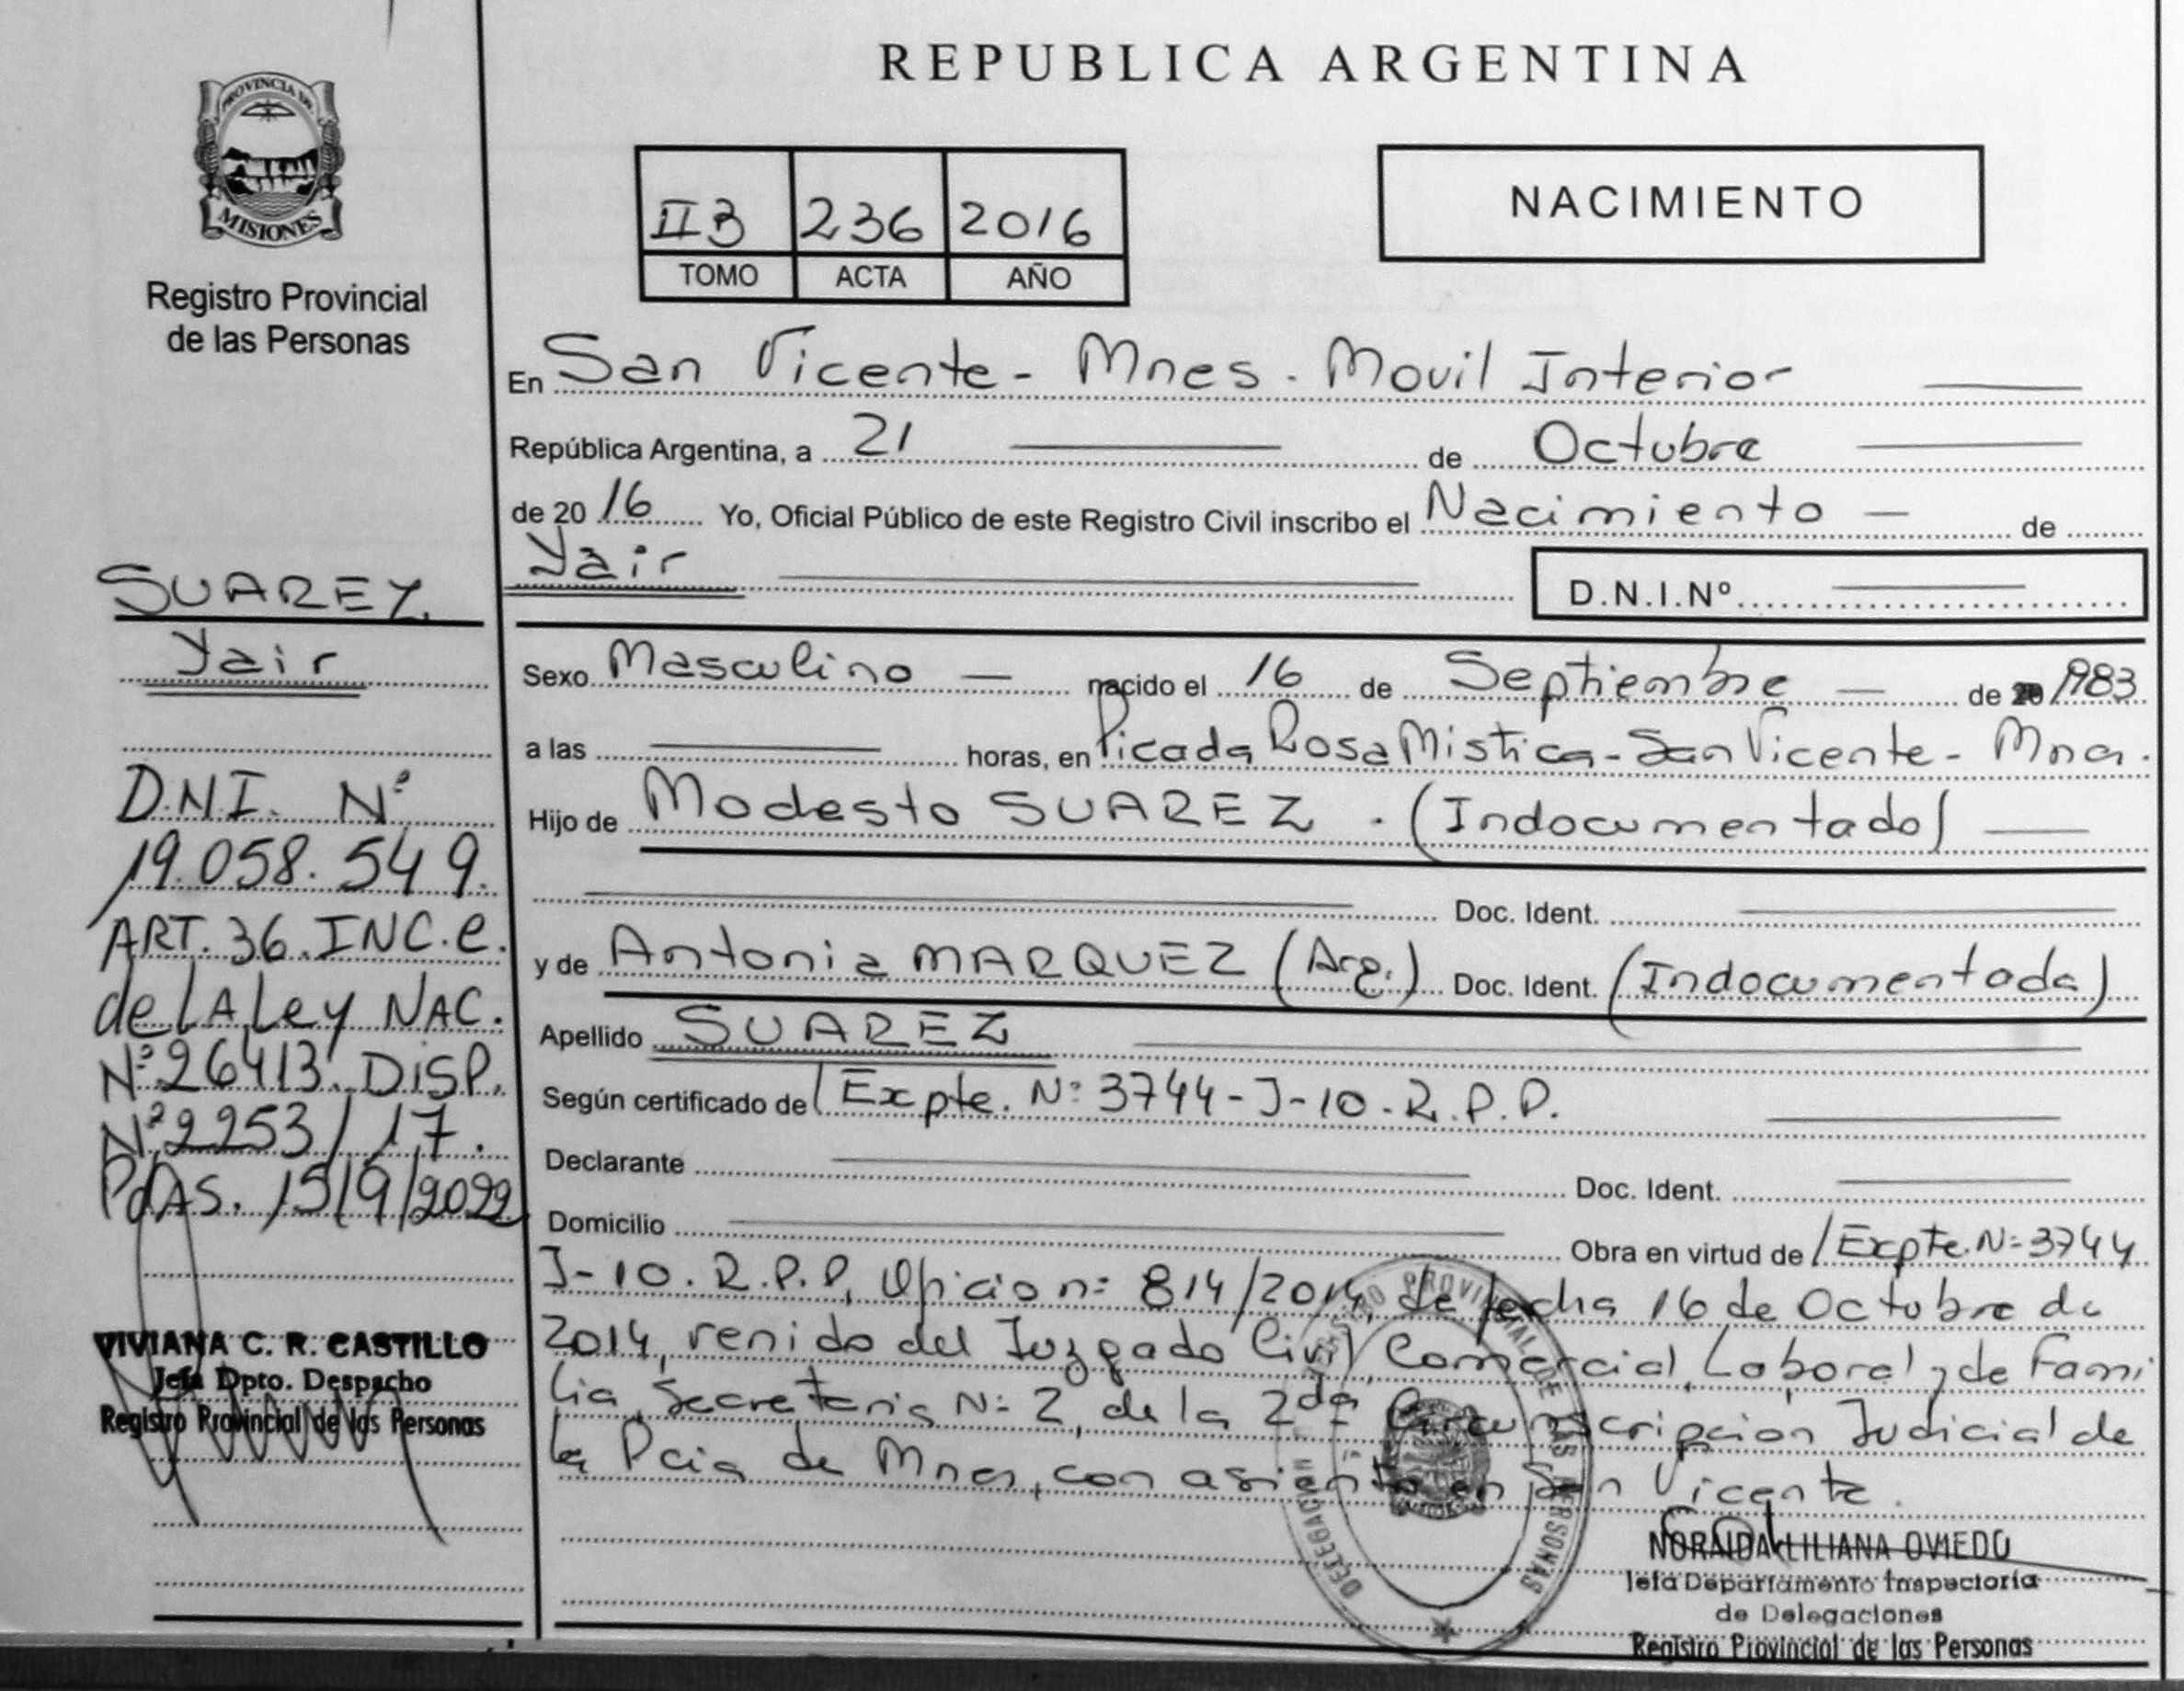 REPUBLICA ARGENTINA
PROVINCIA DE
MISIONES
Registro Provincial
de las Personas
II B 236 2016
TOMO ACTA AÑO
NACIMIENTO
En San Vicente - Mnes. Movil Interior
República Argentina, a 21 de Octubre
de 20 16 Yo, Oficial Público de este Registro Civil inscribo el Nacimiento de
Yair
D.N.I.Nº
Sexo Masculino nacido el 16 de Septiembre de 1983
a las horas, en Picada Rosa Mistica - San Vicente - Mnes.
Hijo de Modesto SUAREZ. (Indocumentado)
Doc. Ident.
y de Antonia MARQUEZ (Arg.) Doc. Ident. (Indocumentada)
Apellido SUAREZ
Según certificado de Expte. Nº 3744-J-10-R.P.P.
Declarante Doc. Ident.
Domicilio Obra en virtud de Expte. Nº 3744
J-10.R.P.P, Oficio nº 814/2014, de fecha 16 de Octubre de
2014, venido del Juzgado Civil, Comercial, Laboral y de Fami
lia, Secretaria Nº 2, de la 2da Circunscripción Judicial de
la Pcia de Mnes, con asiento en San Vicente.
SUAREZ
Yair
D.N.I. Nº
19.058.549.
ART. 36. INC. e.
de LA Ley NAC.
Nº 26413. DISP.
Nº 2253/17.
PdAS. 15/9/2022
VIVIANA C. R. CASTILLO
Jefa Dpto. Despacho
Registro Provincial de las Personas
REGISTRO PROVINCIAL DE LAS PERSONAS
NORAIDA LILIANA OVIEDO
Jefa Departamento Inspectoría
de Delegaciones
Registro Provincial de las Personas